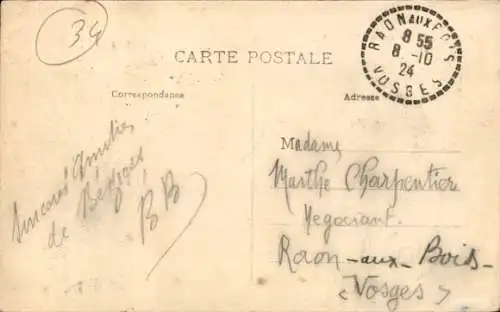 34
CARTE POSTALE
RAON AUX BOIS
8 55
8 -10
24
VOSGES
Correspondance
Adresse
Sincères Amitiés
de
BB
Madame,
Marthe Charpentier
Negociant
Raon-aux-Bois-
<Vosges>